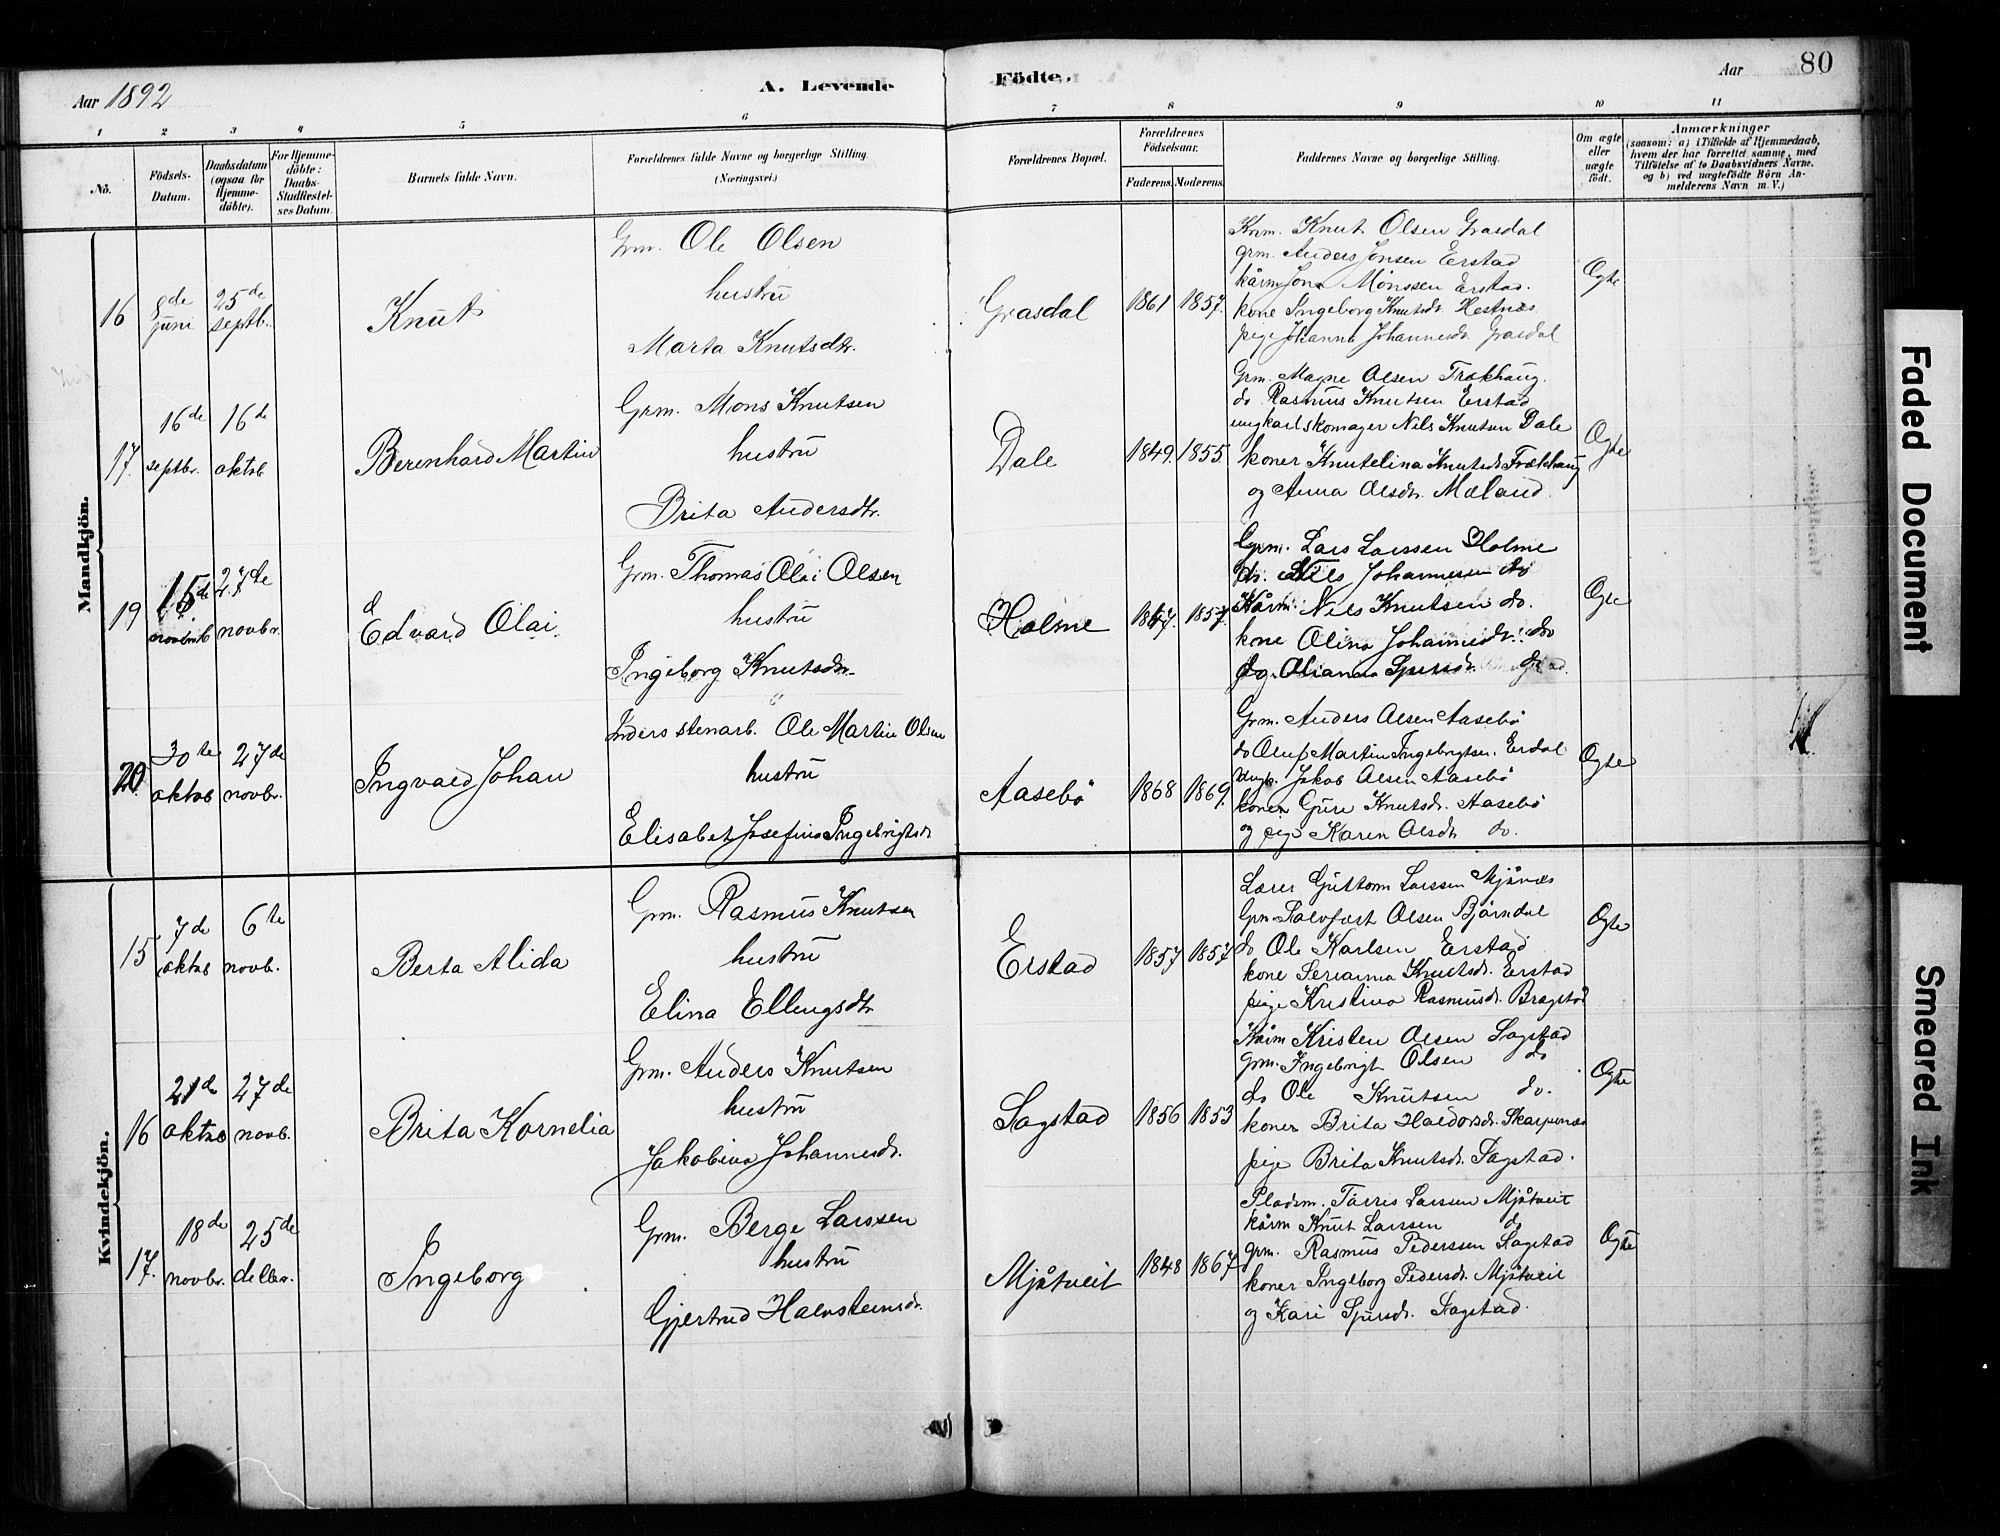 Aar 1892
A. Levende
Födte.
Aar
80
1 2 3 4 5 6 7 8 9 10 11
No.
Födsels-Datum.
Daabsdatum (ogsaa for Hjemme-döbte).
For Hjemme-döbte: Daabs-Stadfæstel-ses Datum.
Barnets fulde Navn.
Forældrenes fulde Navne og borgerlige Stilling.
(Næringsvei.)
Forældrenes Bopæl.
Forældrenes Födselsaar.
Faderens. Moderens.
Faddernes Navne og borgerlige Stilling.
Om ægte eller uægte födt.
Anmærkninger
(saasom: a) i Tilfælde af Hjemmedaab, hvem der har forrettet samme, med Tilföielse af to Daabsvidners Navne, og b) ved uægtefödte Börn An-melderens Navn m. V.)
Mandkjön.
16
8de juni
25de septbr.
Knut
Grm. Ole Olsen
hustru
Marta Knutsdtr.
Grasdal
1861 1857.
Knm. Knut Olsen Grasdal
grm. Anders Jonsen Erstad
kårm Jon Mönssen Erstad.
kone Ingeborg Knutsdr. Hestnæs
pige Johanna Johannesdr. Grasdal
Ogte
17.
16de septbr.
16de oktob
Berenhard Martin
Grm. Mons Knutsen
hustru
Brita Andersdtr.
Dale
1849. 1855.
Grm. Magne Olsen Trækhaug.
do Rasmus Knutsen Erstad
ungkarl skomager Nils Knutsen Dale
koner Knutelina Knutsdr. Trækhaug
og Anna Olsdtr. Mæland.
Ogte
19
15de novbr
27de novbr.
Edvard Olai.
Grm. Thomas Olai Olsen
hustru
Ingeborg Knutsdtr.
Holme
1857.
Grm. Lars Larssen Holme
do. Nils Johannesen do
Kårm. Nils Knutsen do.
kone Olina Johannesdr. do
pg. Olianna do
Ogte
20.
30te oktob
27de novbr.
Ingvald Johan
Inders stenarb. Ole Martin Olsen
hustru
Elisabet Josefine Ingebrigtsdr
Aasebö
1868 1869.
Grm. Anders Olsen Aasebö
do Oluf Martin Ingebrigtsen. Erdal
Ungk. Jakob Olsen Aasebö
koner Gure Knutsdr. Aasebö
og pige Karen Olsdr do.
Ogte
Kvindekjön.
15
7de oktob
6te novb.
Berta Alida
Grm. Rasmus Knutsen
hustru
Elina Ellingsdtr
Erstad
1857 1857
Lærer Guttorm Larssen Mjånæs
Grm. Olsen Björndal
do Ole Karlsen Erstad
kone Serianna Knutsdr. Erstad
pige Kristina Rasmusdr. Bragstad
Ogte
16
21de oktob
27de novb.
Brita Kornelia
Grm. Anders Knutsen
hustru
Jakobina Johannesdr.
Sagstad
1856 1853
Kårm Kristen Olsen Sagstad
grm. Ingebrigt Olsen do
do Ole Knutsen do.
koner Brita Haldorsdr. Skarpenæs
pige Brita Knutsdr. Sagstad.
Ogte
17.
18de novbr.
25de decbr.
Ingeborg
Grm. Berge Larssen
hustru
Gjertrud Halvsteinsdr.
Mjåtveit
1848 1867
Pladsm. Tørris Larssen Mjåtveit
kårm Knut Larssen do
grm. Rasmus Pederssen Sagstad
koner Ingeborg Pedersdr. Mjåtveit
og Kari Sjursdr. Sagstad.
Ogte
Faded Document
Smeared Ink